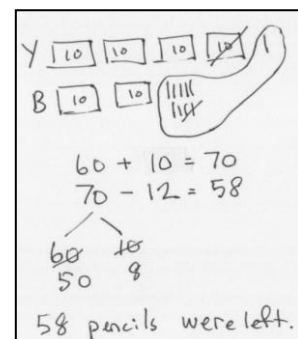 Y 10 10 10 10 1
B 10 10
60 + 10 = 70
70 - 12 = 58
60 10
50 8
58 pencils were left.